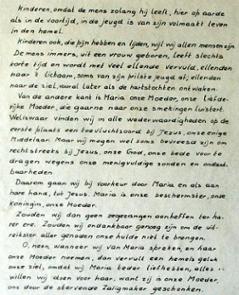 Kinderen, omdat de mens zolang hij leeft, hier op aarde
als in de voortijd, in de jeugd is van zijn volmaakt leven
in den hemel.
Kinderen ook, die pijn hebben en lijden, wijl wij allen mensen zijn
De mens immers, uit een vrouw geboren, leeft slechts
korte tijd en wordt met veel ellende vervuld, ellenden
naar 't lichaam, soms van zijn prilste jeugd af; ellenden
naar de ziel, vooral later als de hartstochten ontwaken.
Van de andere kant is Maria onze Moeder, onze liefde-
rijke Moeder, die gaarne naar onze smekingen luistert.
Weliswaar vinden wij in alle wederwaardigheden op de
eerste plaats een toevluchtsoord bij Jesus, onze enige
Middelaar. Maar wij mogen wel soms bevreesd zijn om
rechtstreeks bij Jesus, onze God, onze bede voor te
dragen wegens onze menigvuldige zonden en ondank
baarheden
Daarom gaan wij bij voorkeur door Maria en als aan
hare hand, tot Jesus. Maria is onze beschermster, onze
Koningin, onze Moeder.
Zouden wij dan geen zegezangen aanheffen ter ha-
rer ere. Zouden wij ondankbaar genoeg zijn om de uit-
reikster aller genaden onze hulde niet te brengen.
O, neen, wanneer wij van Maria spreken, en haar
onze Moeder noemen, dan vervult een hemels geluk
onze ziel, omdat wij Maria teder liefhebben, alles
willen wij doen voor haar, want zij is onze Moeder,
ons door de stervende Zaligmaker geschonken.